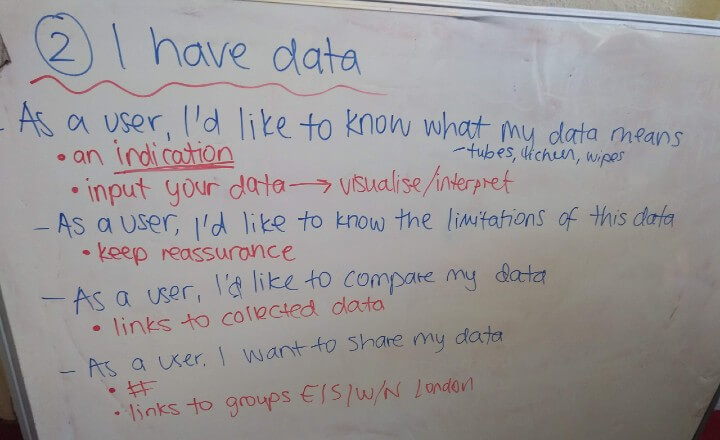 ② I have data
- As a user, I'd like to know what my data means
- tubes, lichen, wipes
• an indication
• input your data → visualise/interpret
- As a user, I'd like to know the limitations of this data
• keep reassurance
- As a user, I'd like to compare my data
• links to collected data
- As a user, I want to share my data
• #
• links to groups E/S/W/N London